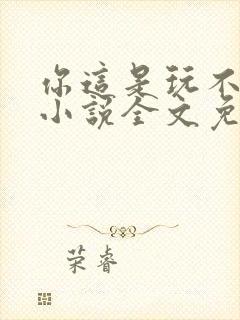 你這是玩不
小說全文免
荣睿